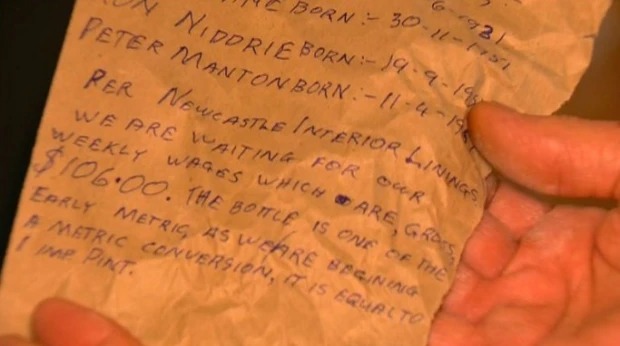 BORN:- 30-11-1951
RON NIDDRIE BORN:- 19-9-19
PETER MANTON BORN:- 11-4-19
PER NEWCASTLE INTERIOR LININGS
WE ARE WAITING FOR OUR
WEEKLY WAGES WHICH ARE, GROSS,
$106.00. THE BOTTLE IS ONE OF THE
EARLY METRIC AS WE ARE BEGINING
A METRIC CONVERSION, IT IS EQUAL TO
1 IMP PINT.